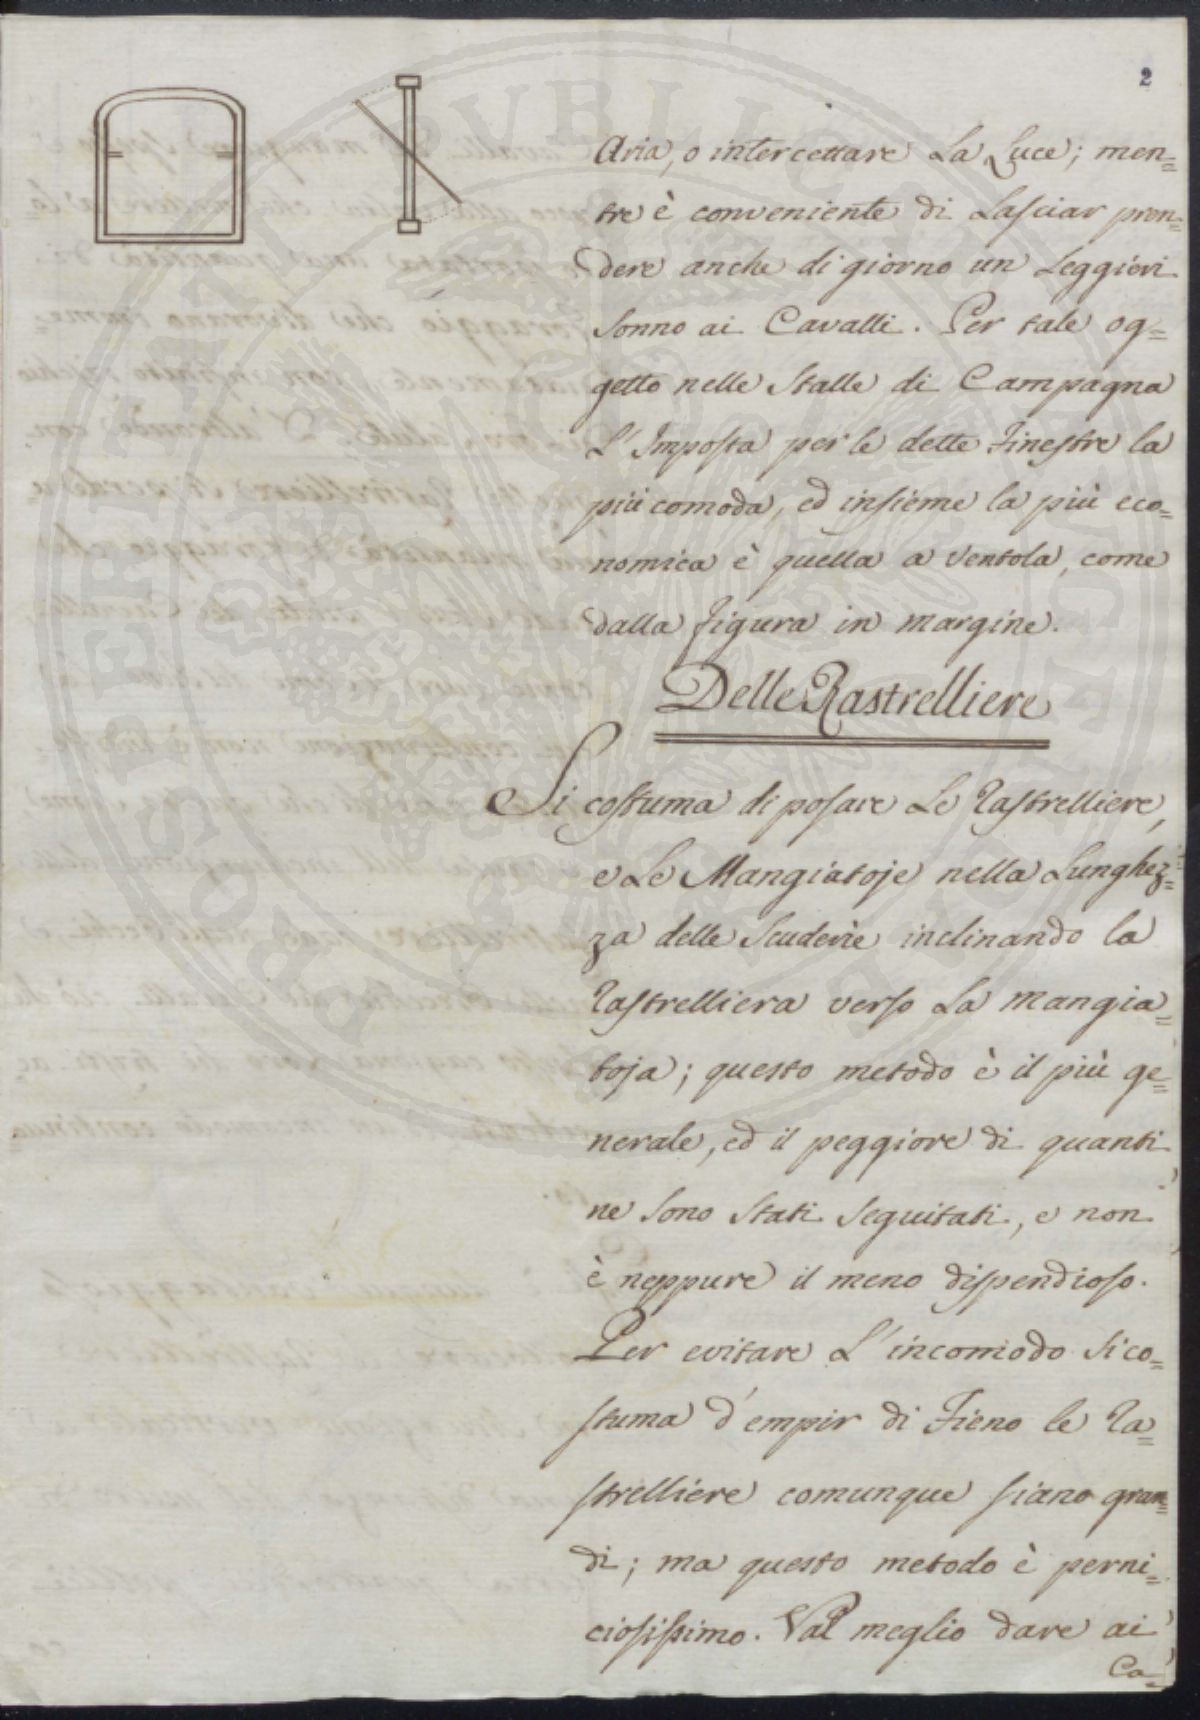 2
Aria, o intercettare La Luce; men=
tre è conveniente di Lasciar pren=
dere anche di giorno un Leggieri
Sonno ai Cavalli. Per tale og=
getto nelle Stalle di Campagna
L'Imposta per le dette Finestre la
più comoda, ed insieme la più eco=
nomica è quella a Ventola, come
dalla figura in margine.
Delle Rastrelliere
Si costuma di posare Le Rastrelliere,
e Le Mangiatoje nella Lunghez=
za delle Scuderie inclinando la
Rastrelliera verso La Mangia=
toja; questo metodo è il più ge=
nerale, ed il peggiore di quanti
ne sono stati seguitati, e non
è neppure il meno dispendioso.
Per evitare L'incomodo si co=
stuma d'empir di Fieno le Ra=
strelliere comunque siano gran=
di; ma questo metodo è perni=
ciosissimo. Val meglio dare ai
Ca=